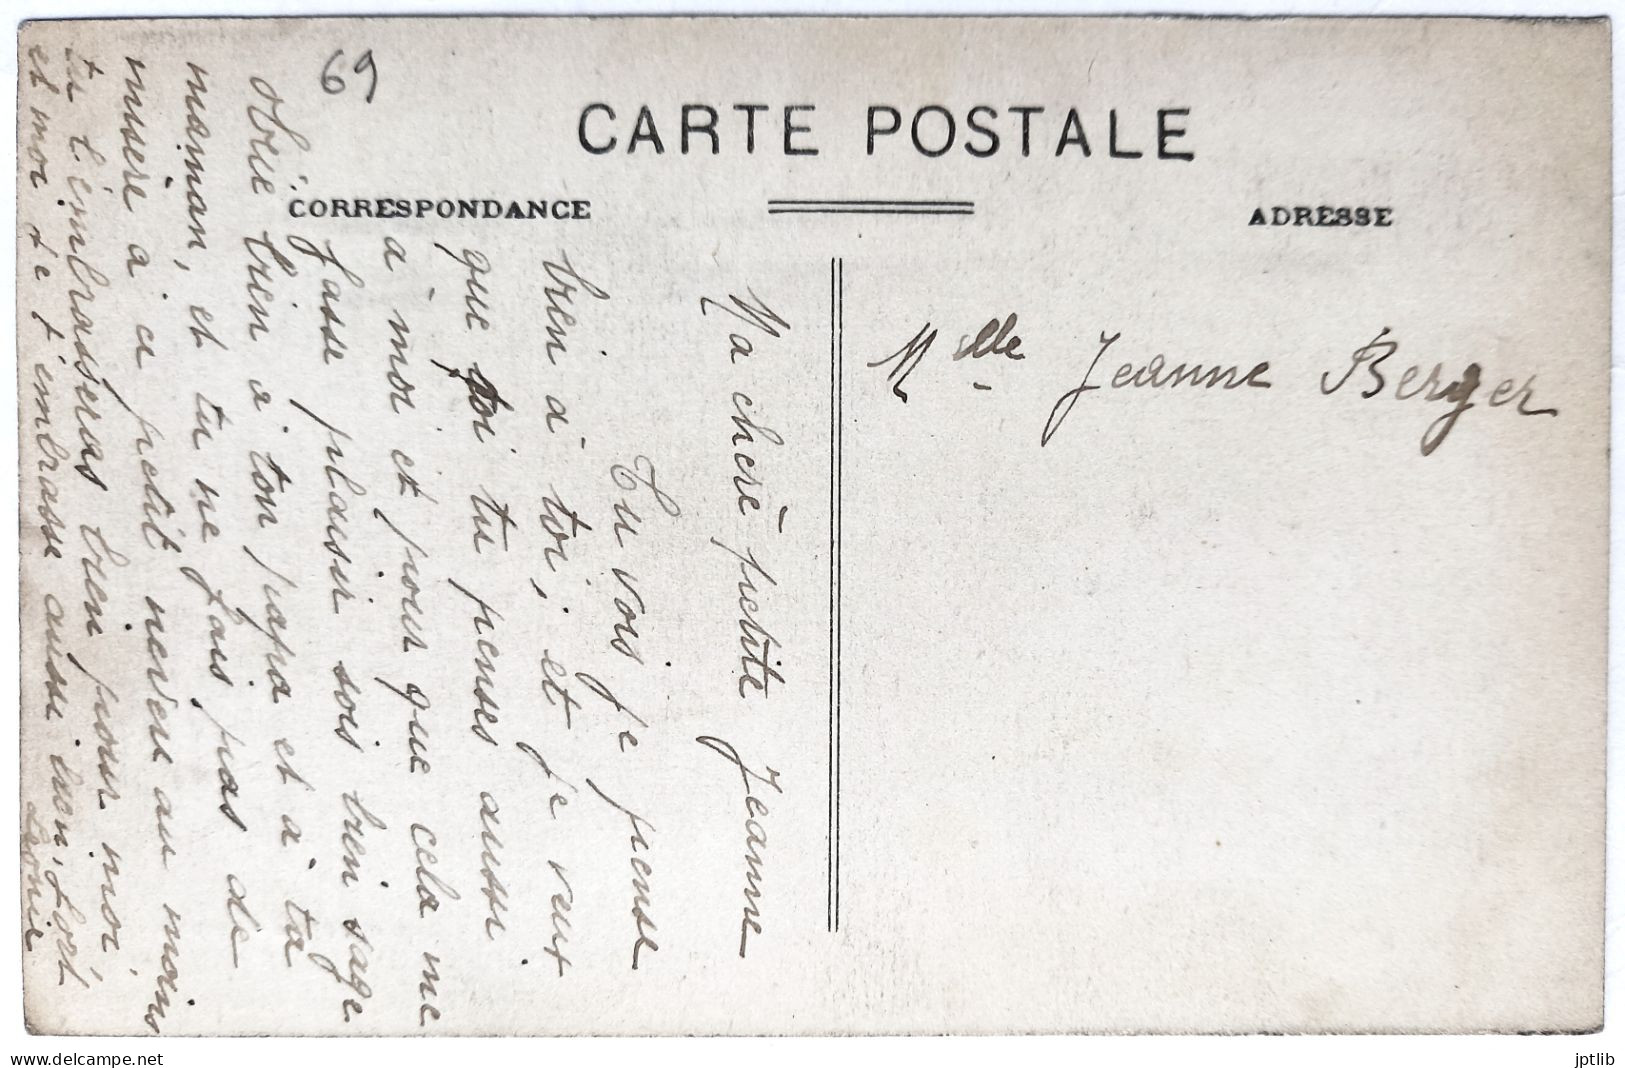 69
CARTE POSTALE
CORRESPONDANCE
ADRESSE
Ma chère petite Jeanne
Tu vois je pense
bien à toi, et je veux
que toi tu penses aussi
à moi et pour que cela me
fasse plaisir sois bien sage
obéie bien à ton papa et à ta
maman, et tu ne fais pas de
misère à ce petit neveu au moins
tu l'embrasseras bien pour moi
et moi je t'embrasse aussi bien fort
Léonie
Melle Jeanne Berger
delcampe.net
jptlib